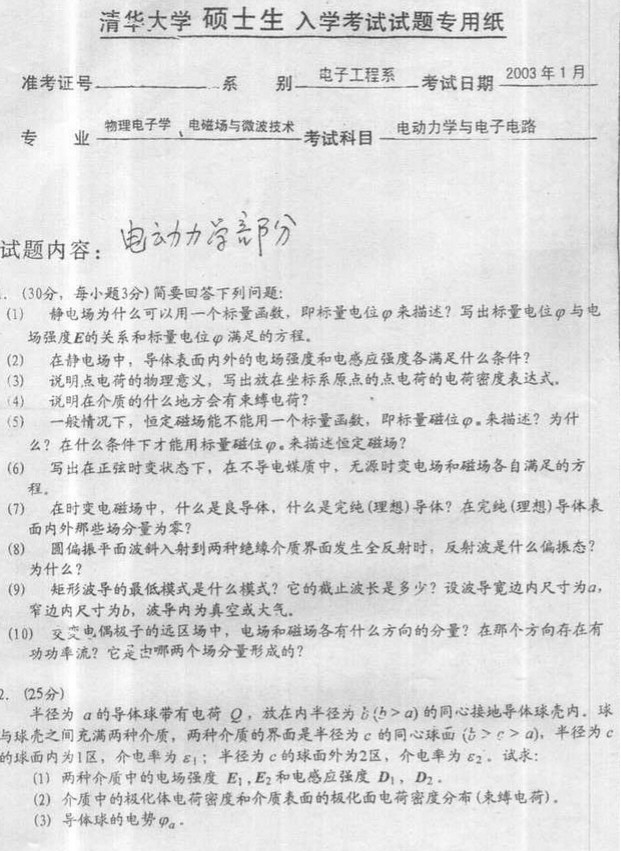 清华大学 硕士生 入学考试试题专用纸
准考证号 系 别 电子工程系 考试日期 2003年1月
专 业 物理电子学、电磁场与微波技术 考试科目 电动力学与电子电路
试题内容: 电动力学部分
. (30分, 每小题3分)简要回答下列问题:
(1) 静电场为什么可以用一个标量函数, 即标量电位φ来描述? 写出标量电位φ与电
场强度E的关系和标量电位φ满足的方程。
(2) 在静电场中, 导体表面内外的电场强度和电感应强度各满足什么条件?
(3) 说明点电荷的物理意义, 写出放在坐标系原点的点电荷的电荷密度表达式。
(4) 说明在介质的什么地方会有束缚电荷?
(5) 一般情况下, 恒定磁场能不能用一个标量函数, 即标量磁位φₘ来描述? 为什
么? 在什么条件下才能用标量磁位φₘ来描述恒定磁场?
(6) 写出在正弦时变状态下, 在不导电媒质中, 无源时变电场和磁场各自满足的方
程。
(7) 在时变电磁场中, 什么是良导体, 什么是完纯(理想)导体? 在完纯(理想)导体表
面内外那些场分量为零?
(8) 圆偏振平面波斜入射到两种绝缘介质界面发生全反射时, 反射波是什么偏振态?
为什么?
(9) 矩形波导的最低模式是什么模式? 它的截止波长是多少? 设波导宽边内尺寸为a,
窄边内尺寸为b, 波导内为真空或大气。
(10) 交变电偶极子的远区场中, 电场和磁场各有什么方向的分量? 在那个方向存在有
功功率流? 它是由哪两个场分量形成的?
2. (25分)
半径为 a 的导体球带有电荷 Q, 放在内半径为 b (b > a) 的同心接地导体球壳内. 球
与球壳之间充满两种介质, 两种介质的界面是半径为 c 的同心球面 (b > c > a), 半径为 c
的球面内为1区, 介电率为 ε₁; 半径为 c 的球面外为2区, 介电率为 ε₂. 试求:
(1) 两种介质中的电场强度 E₁, E₂ 和电感应强度 D₁, D₂.
(2) 介质中的极化体电荷密度和介质表面的极化面电荷密度分布(束缚电荷).
(3) 导体球的电势φₐ.